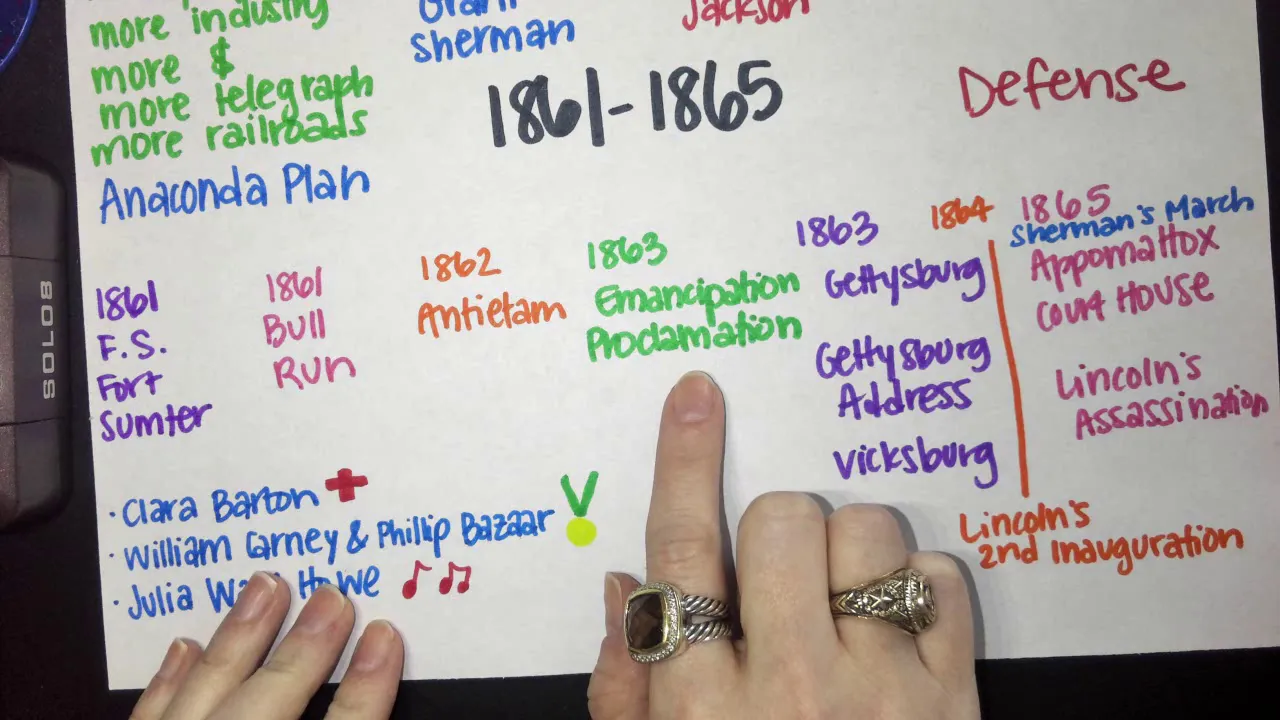 more industry
more $
more telegraph
more railroads
Anaconda Plan
Grant
Sherman
Jackson
1861-1865
Defense
1861
F.S.
Fort
Sumter
1861
Bull
Run
1862
Antietam
1863
Emancipation
Proclamation
1863
Gettysburg
Gettysburg
Address
Vicksburg
1864
1865
Sherman's March
Appomattox
Court House
Lincoln's
Assassination
Lincoln's
2nd Inauguration
· Clara Barton
· William Carney & Phillip Bazaar
· Julia Howe
SOLO8